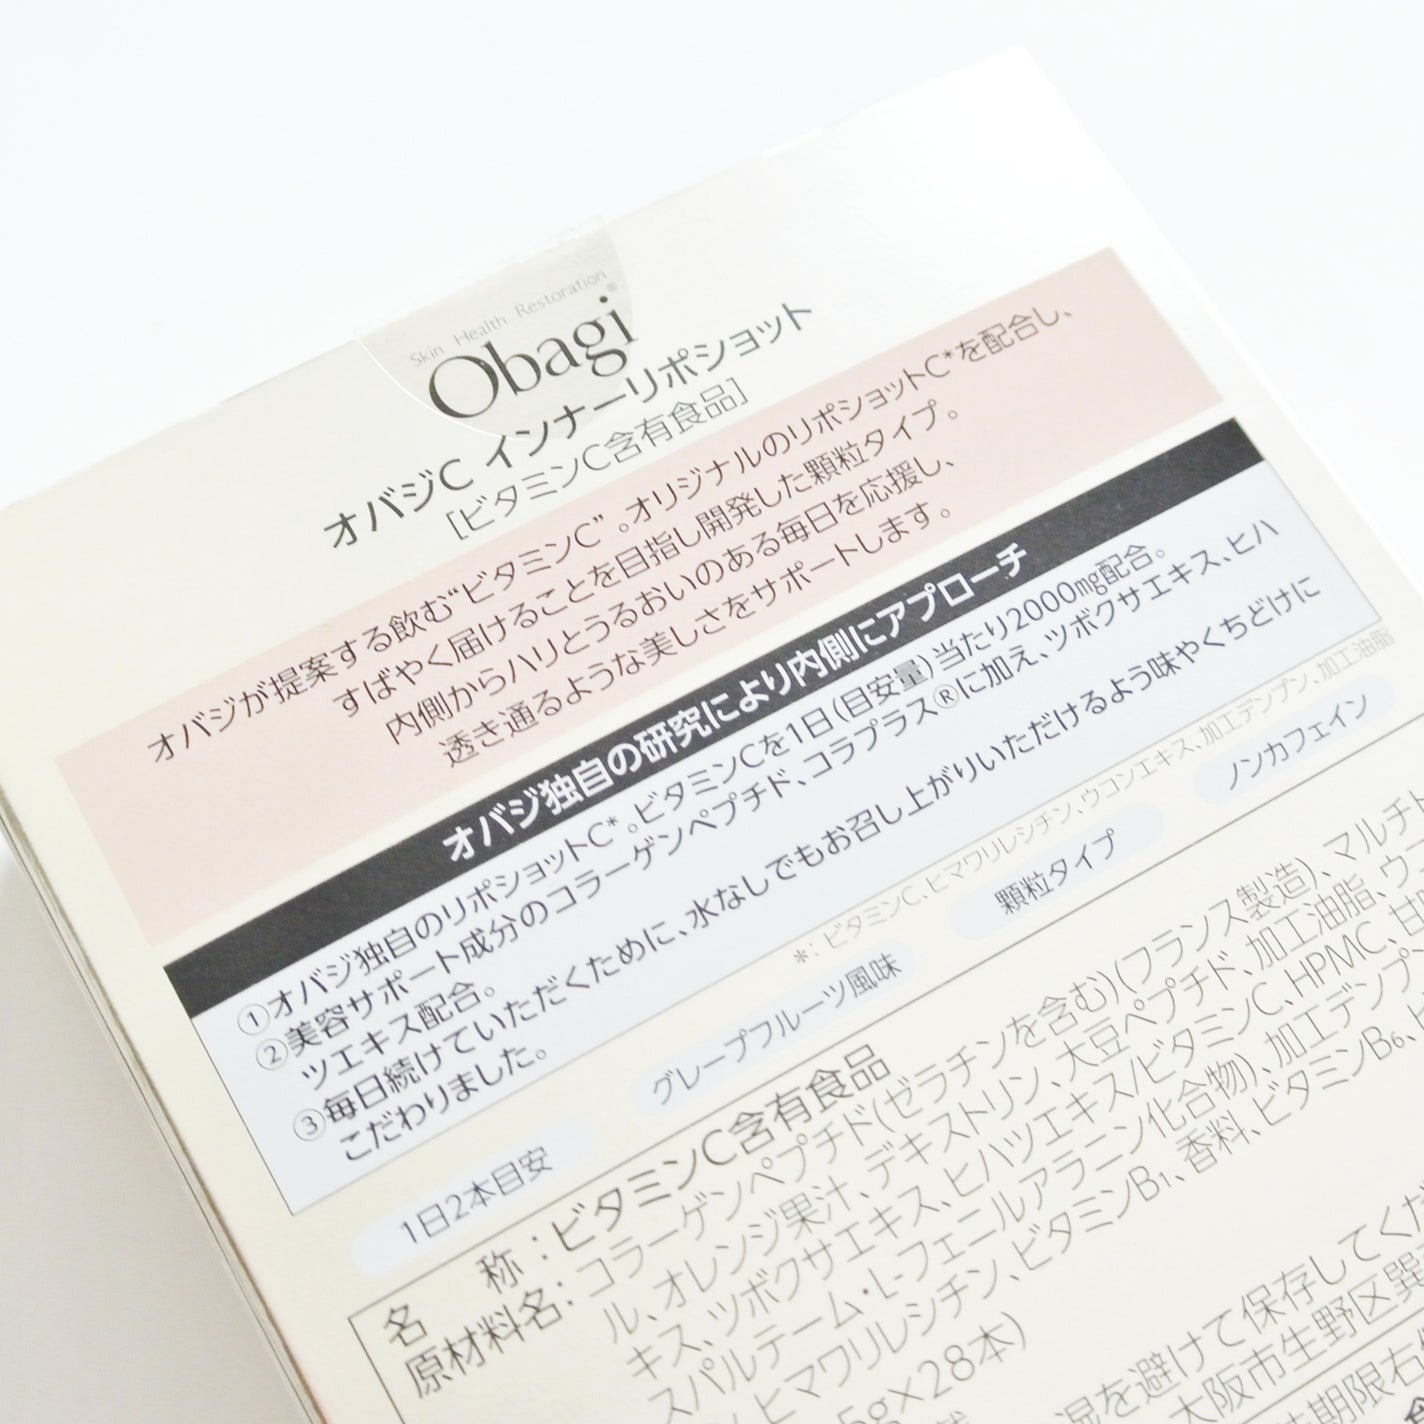 Skin Health Restoration
Obagi®
オバジC インナーリポショット
[ビタミンC含有食品]
オバジが提案する飲む“ビタミンC”。オリジナルのリポショットC*を配合し、
すばやく届けることを目指し開発した顆粒タイプ。
内側からハリとうるおいのある毎日を応援し、
透き通るような美しさをサポートします。
オバジ独自の研究により内側にアプローチ
①オバジ独自のリポショットC*。ビタミンCを1日(目安量)当たり2000mg配合。
②美容サポート成分のコラーゲンペプチド、コラプラス®に加え、ツボクサエキス、ヒハ
ツエキス配合。
③毎日続けていただくために、水なしでもお召し上がりいただけるよう味やくちどけに
こだわりました。
*:ビタミンC、ヒマワリレシチン、ウコンエキス、加工デンプン、加工油脂
1日2本目安 グレープフルーツ風味 顆粒タイプ ノンカフェイン
名 称:ビタミンC含有食品
原材料名:コラーゲンペプチド(ゼラチンを含む)(フランス製造)、マルチト
ル、オレンジ果汁、デキストリン、大豆ペプチド、加工油脂、ウー
キス、ツボクサエキス、ヒハツエキス/ビタミンC、HPMC、甘
スパルテーム・L-フェニルアラニン化合物)、加工デンプン
、ヒマワリレシチン、ビタミンB₁、香料、ビタミンB₆、
5g×28本)
湿を避けて保存してくだ
大阪市生野区巽
期限右